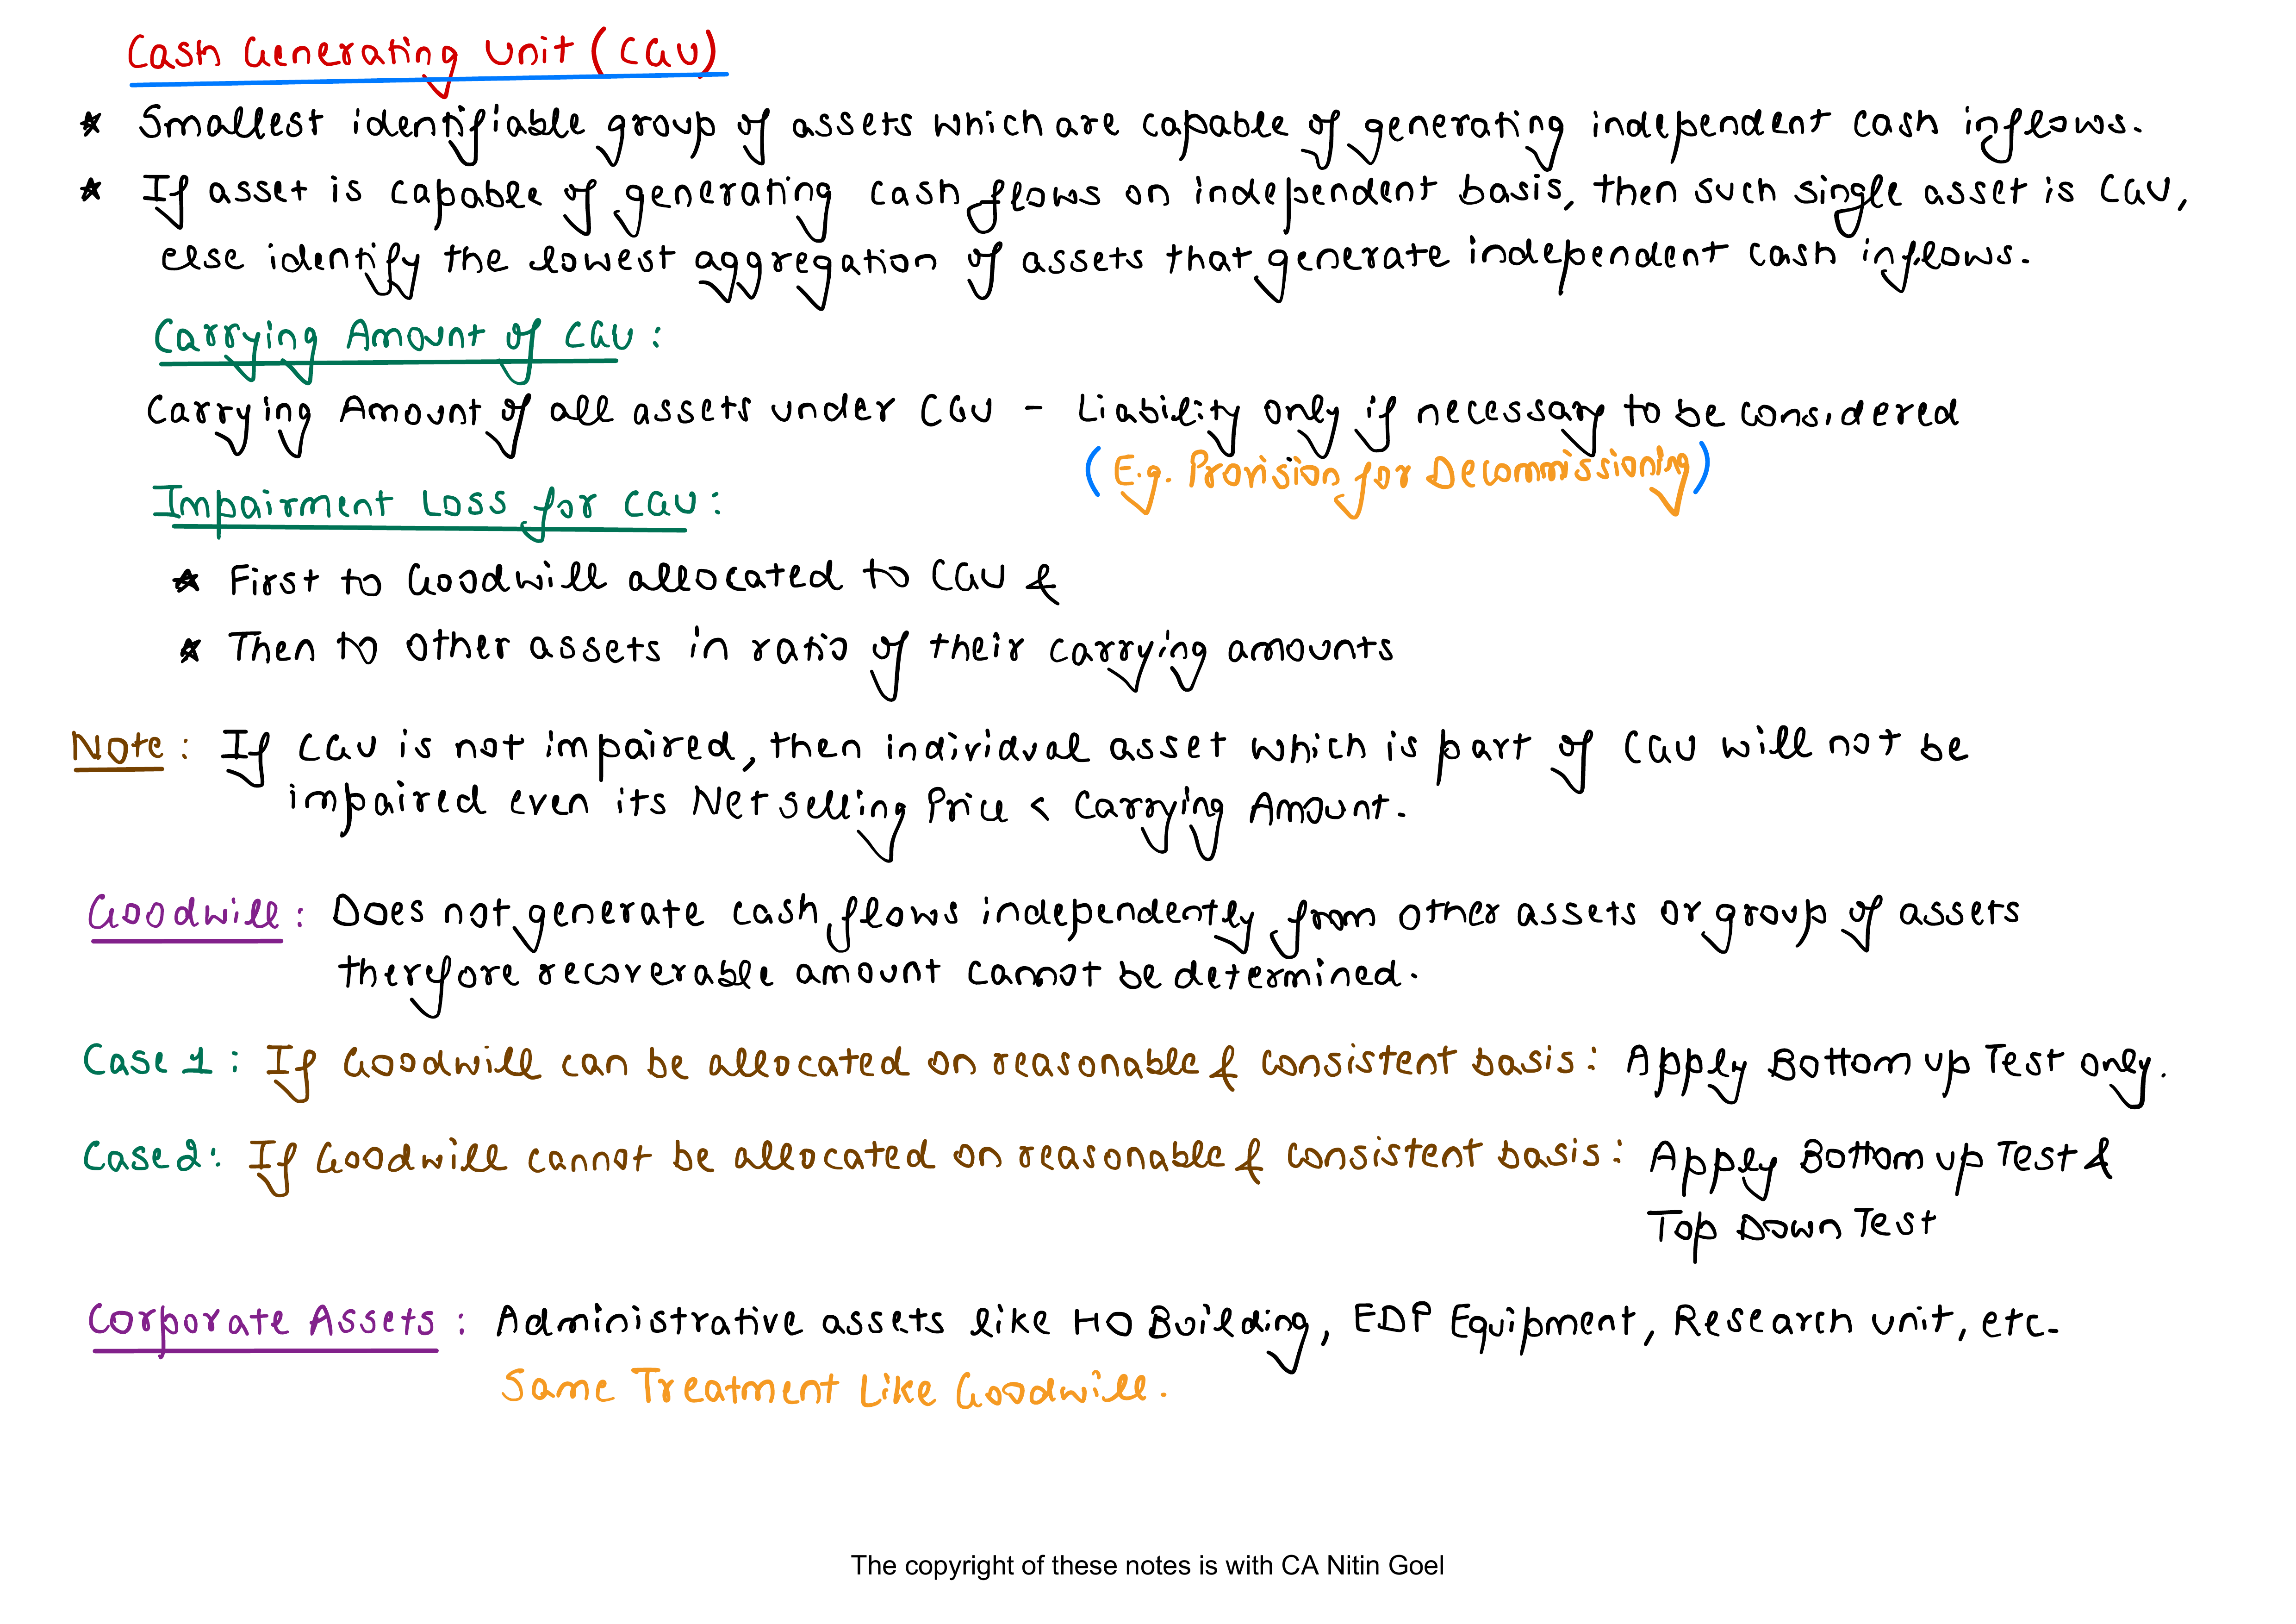 Cash Generating Unit (CGU)
* Smallest identifiable group of assets which are capable of generating independent cash inflows.
* If asset is capable of generating cash flows on independent basis, then such single asset is CGU,
else identify the lowest aggregation of assets that generate independent cash inflows.
Carrying Amount of CGU :
Carrying Amount of all assets under CGU - Liability only if necessary to be considered
(E.g. Provision for Decommissioning)
Impairment Loss for CGU :
* First to Goodwill allocated to CGU &
* Then to other assets in ratio of their carrying amounts
Note : If CGU is not impaired, then individual asset which is part of CGU will not be
impaired even its Net selling Price < Carrying Amount.
Goodwill : Does not generate cash flows independently from other assets or group of assets
therefore recoverable amount cannot be determined.
Case 1 : If Goodwill can be allocated on reasonable & consistent basis : Apply Bottom up Test only.
Case 2 : If Goodwill cannot be allocated on reasonable & consistent basis : Apply Bottom up Test &
Top Down Test
Corporate Assets : Administrative assets like HO Building, EDP Equipment, Research unit, etc.
Same Treatment Like Goodwill.
The copyright of these notes is with CA Nitin Goel